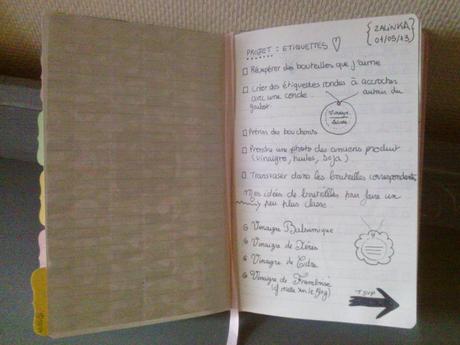 {ZALINKA
01/05/13}
PROJET : ETIQUETTES ♡
□ Récupérer des bouteilles que j'aime
□ Créer des étiquettes rondes à accrocher
avec une corde autour du
goulot.
Vinaigre
□ Prévoir des bouchons
□ Prendre une photo des anciens produit
(vinaigre, huiles, soja)
□ Transvaser dans les bouteilles correspondantes
Mes idées de bouteilles pour faire un
peu plus classe
Vinaigre Balsamique
Vinaigre de Xérès
Vinaigre de Cidre
Vinaigre de Framboise
TSVP